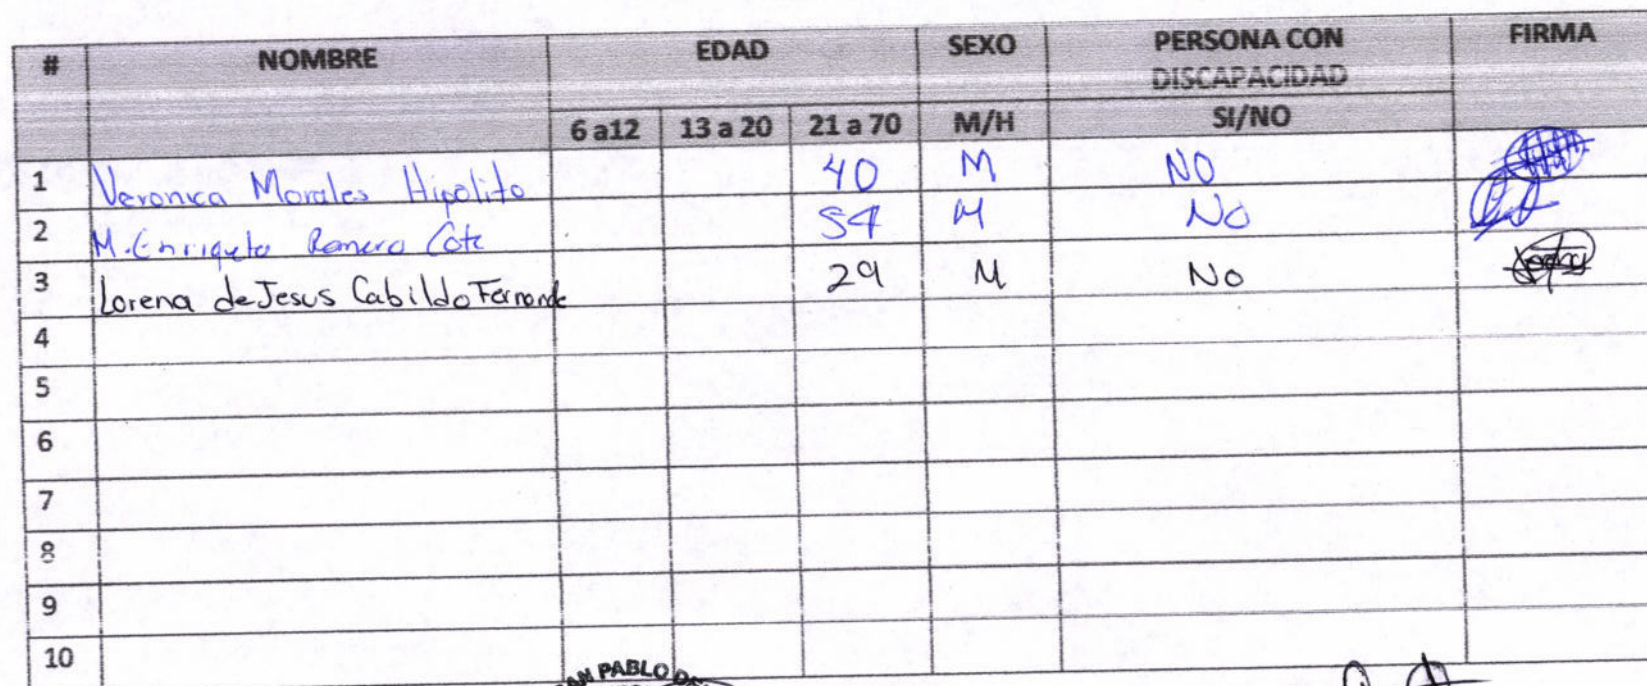 # NOMBRE EDAD SEXO PERSONA CON DISCAPACIDAD FIRMA
6 a12 13 a 20 21 a 70 M/H SI/NO
1 Veronica Morales Hipolito 40 M NO
2 M. Enriqueta Romero Cote 54 M No
3 Lorena de Jesus Cabildo Fernande 29 M No
4
5
6
7
8
9
10
PABLO